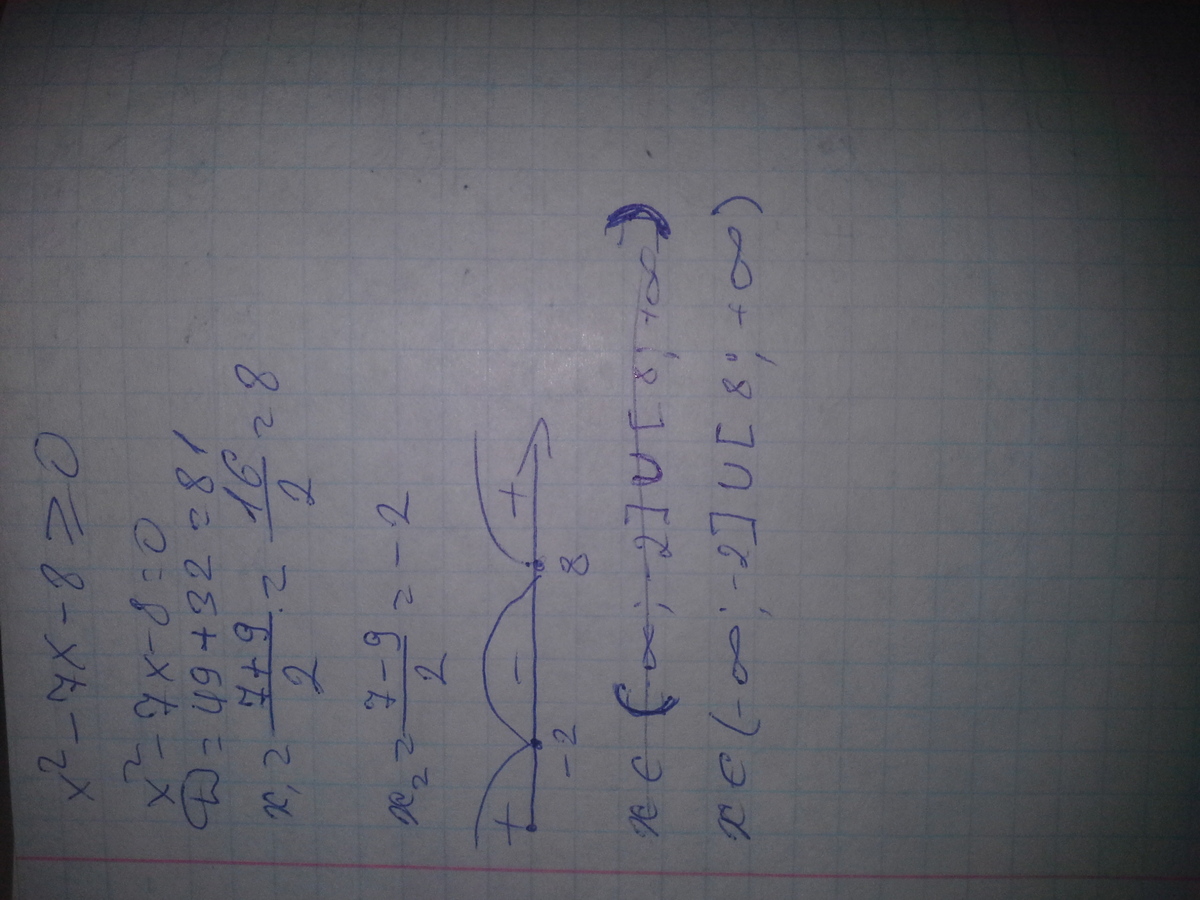 x² - 7x - 8 ≥ 0
x² - 7x - 8 = 0
D = 49 + 32 = 81
x₁ = (7+9)/2 = 16/2 = 8
x₂ = (7-9)/2 = -2
+ - +
-2 8
x ∈ (-∞; -2] ∪ [8; +∞)
x ∈ (-∞; -2] ∪ [8; +∞)